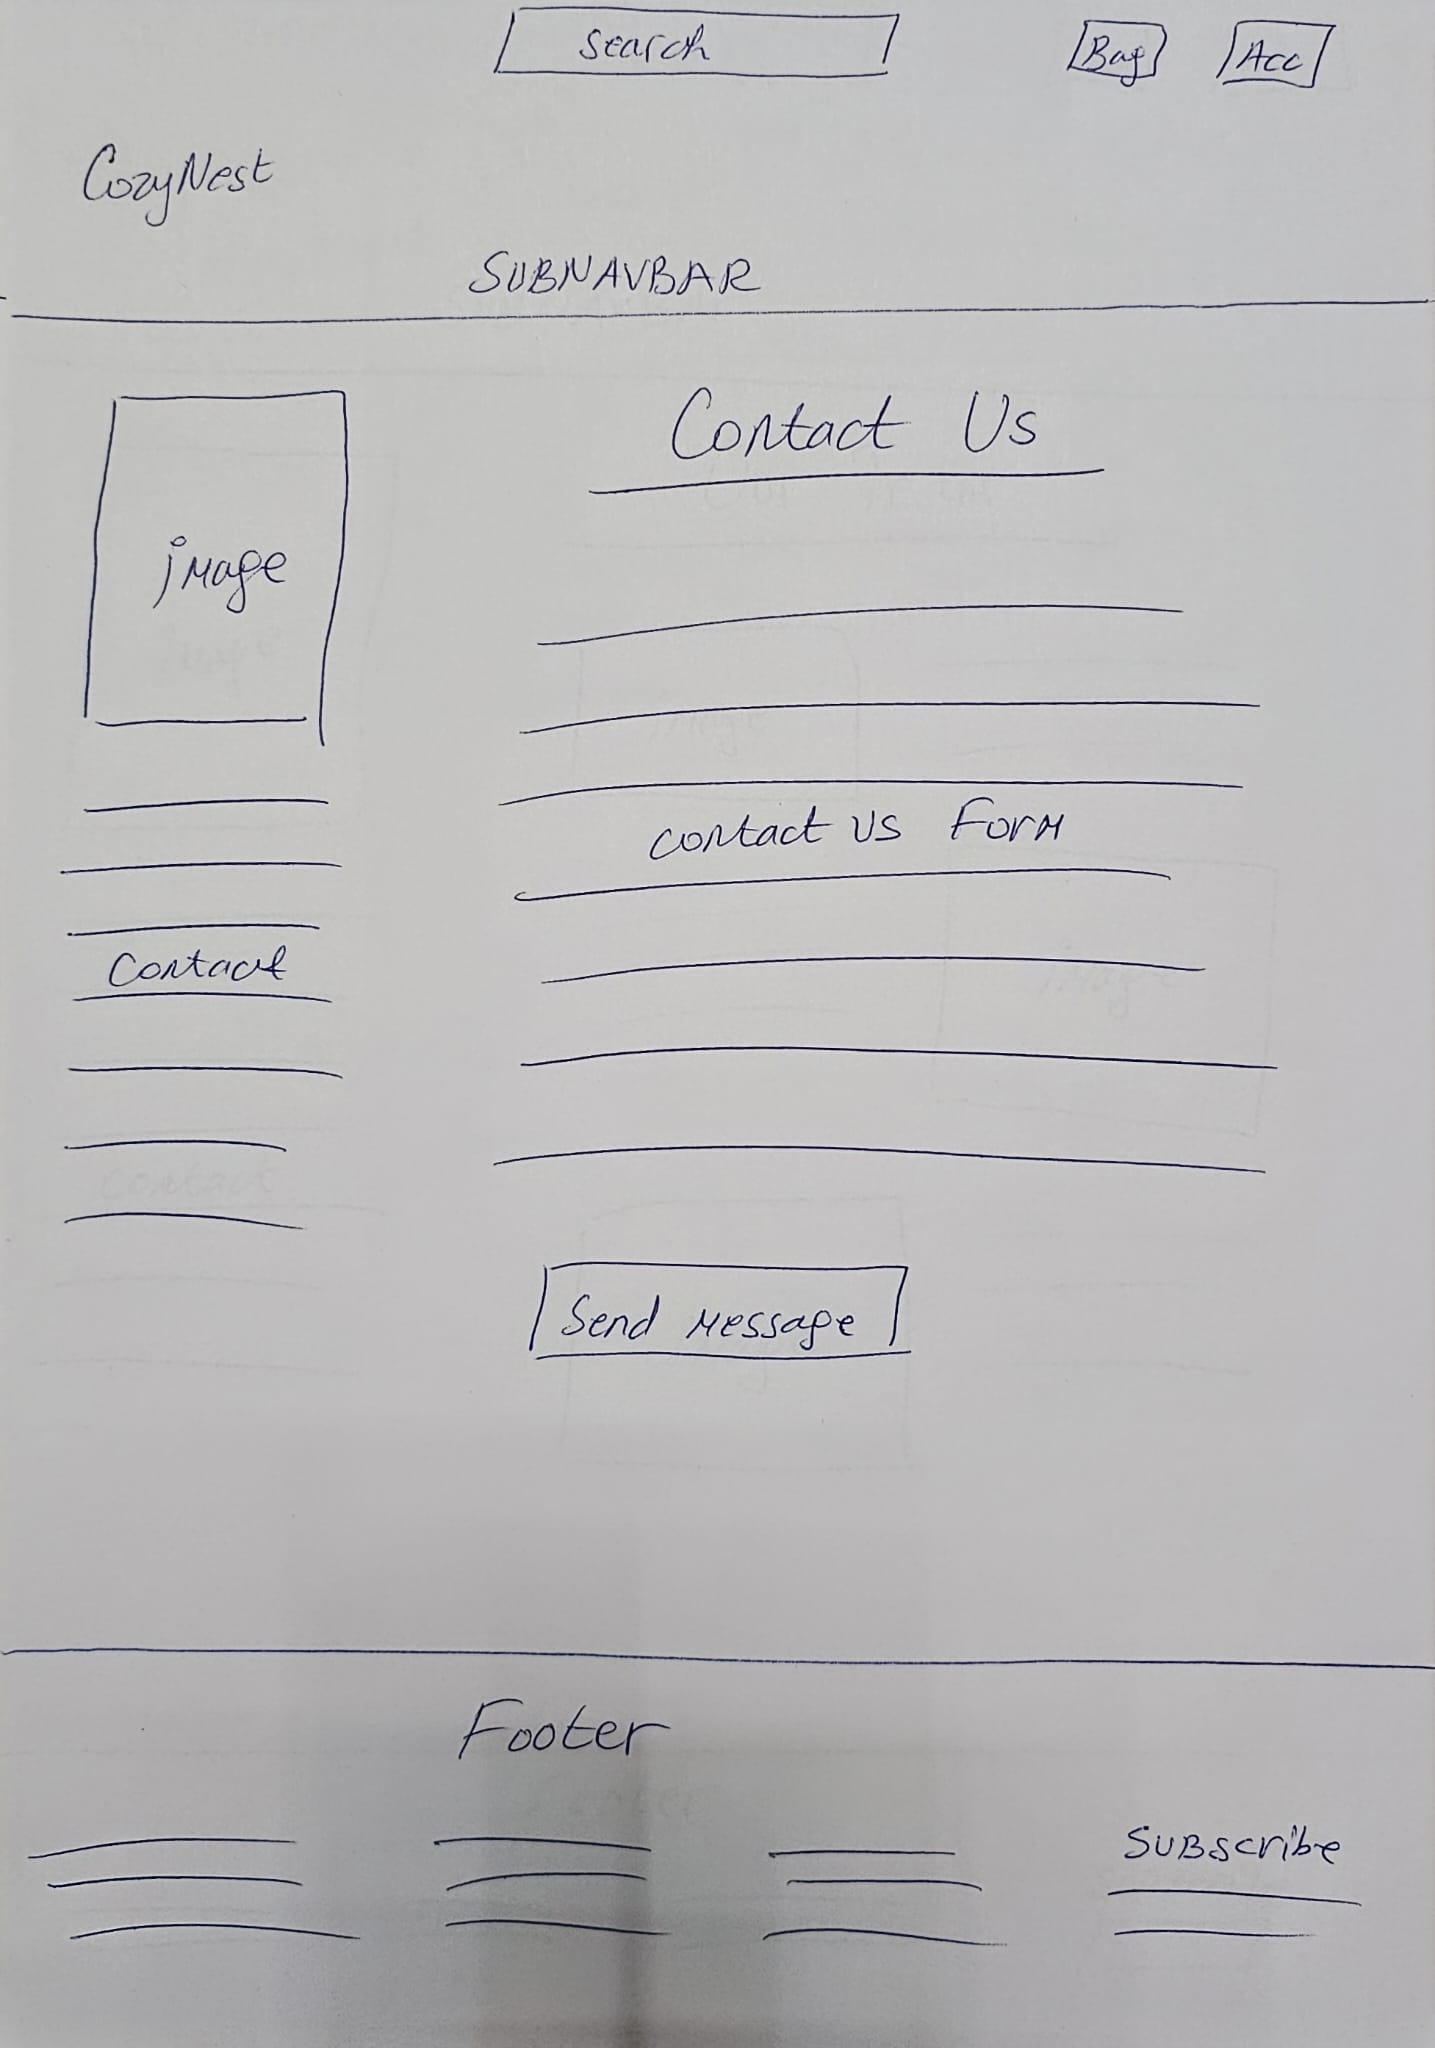 Search
Bag
Acc
CozyNest
SUBNAVBAR
Contact Us
image
contact us Form
Contact
Send Message
Footer
Subscribe